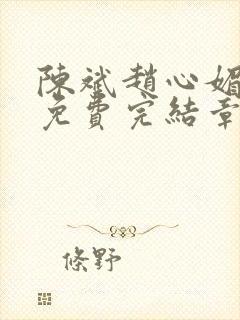 陳斌趙心媚
免費完結章
條野